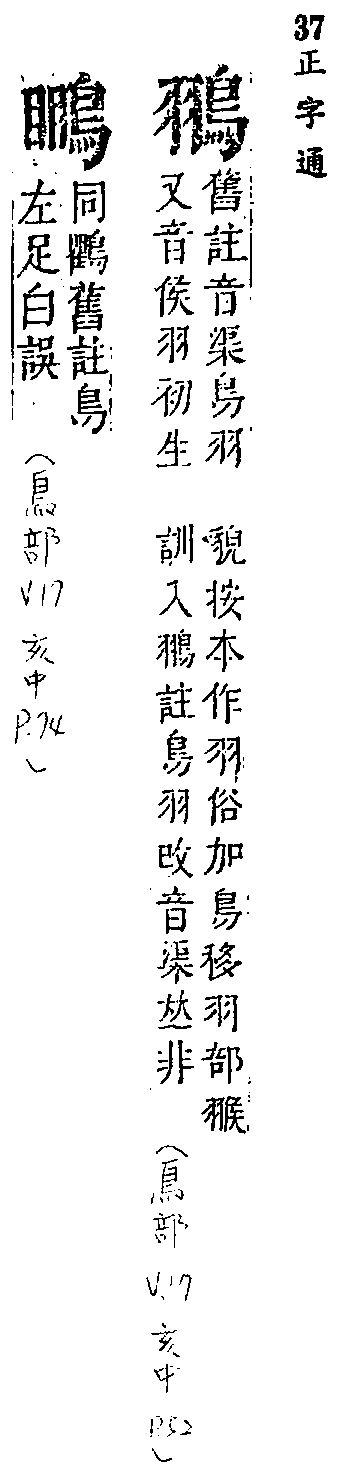 37 正字通
舊註音渠鳥羽 貌按本作羽俗加鳥移羽部翭
又音侯羽初生 訓入註鳥羽改音渠𠀤非
(鳥部 V.17 亥中 P.52)
同舊註鳥
左足白誤
(鳥部 V.17 亥中 P.74)